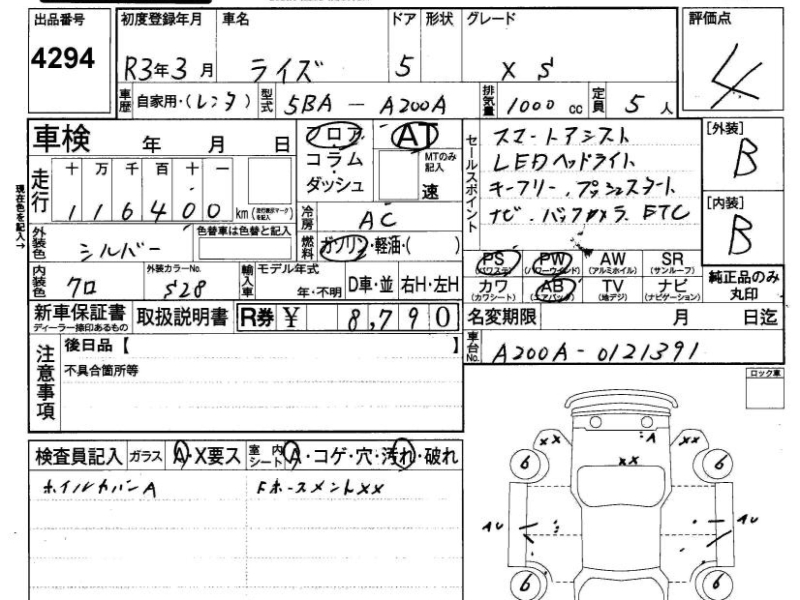 出品番号 初度登録年月 車名 ドア 形状 グレード 評価点
4294 R3年3月 ライズ 5 XS 4
車歴 自家用・(レンタ) 型式 5BA-A200A 排気量 1000cc 定員 5人
車検 年 月 日 フロア コラム ダッシュ AT MTのみ記入 速
セールスポイント
スマートアシスト
LEDヘッドライト
キーフリー．プッシュスタート
ナビ．バックカメラ．ETC
[外装] B
[内装] B
現在色を記入→
走行 十 万 千 百 十 一
116400 km
冷房 AC
外装色 シルバー 色替車は色替と記入 燃料 ガソリン・軽油・( )
内装色 クロ 外装カラーNo. S28 輸入車 モデル年式 年・不明 D車・並 右H・左H
PS (パワステ) PW (パワーウインド) AW (アルミホイル) SR (サンルーフ)
カワ (カワシート) AB (エアバッグ) TV (地デジ) ナビ (ナビゲーション)
純正品のみ丸印
新車保証書 ディーラー捺印あるもの 取扱説明書 R券 ¥ 8,790 名変期限 月 日迄
車台No. A200A-0121391
注意事項 後日品【 】
不具合箇所等
ロック車
検査員記入 ガラス A・X要ス 室内シート A・コゲ・穴・汚れ・破れ
ホイルカバーA FホースメントXX
A
XX XX
XX
6 6
AU AU
6 6